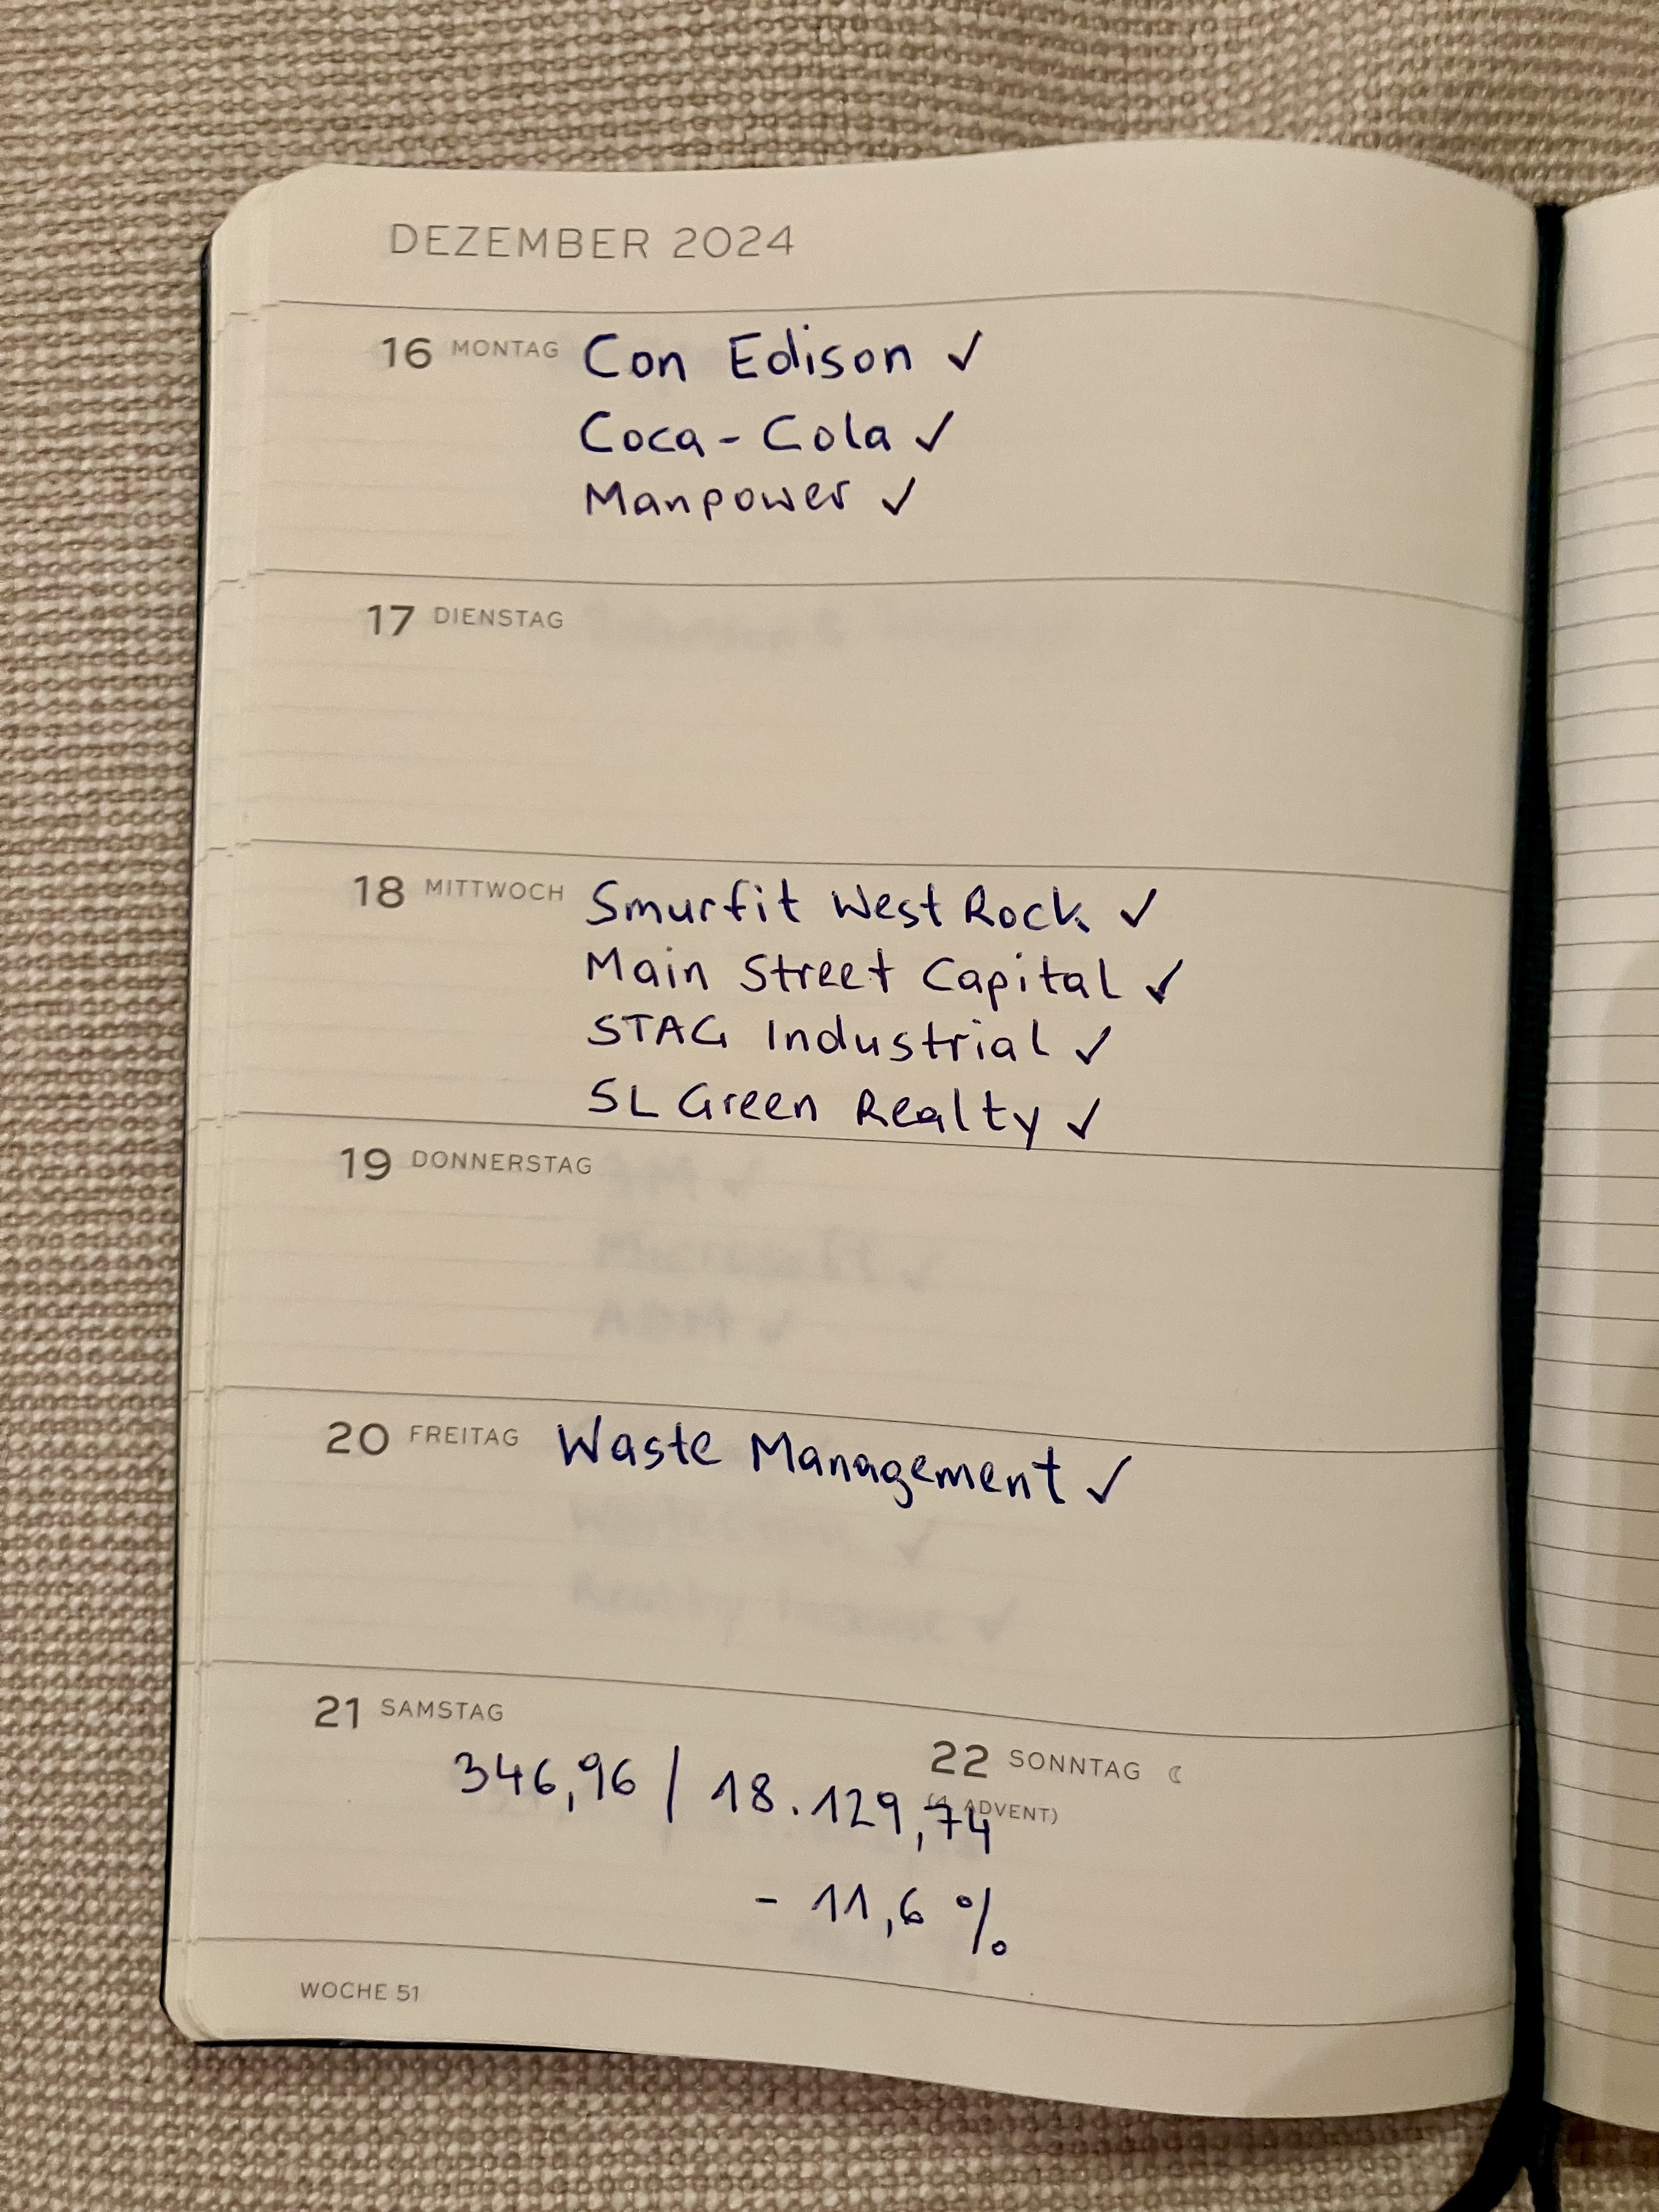 DEZEMBER 2024
16 MONTAG Con Edison ✓
Coca-Cola ✓
Manpower ✓
17 DIENSTAG
18 MITTWOCH Smurfit WestRock ✓
Main Street Capital ✓
STAG Industrial ✓
SL Green Realty ✓
19 DONNERSTAG
3M ✓
Microsoft ✓
ADM ✓
20 FREITAG Waste Management ✓
Realty Income ✓
21 SAMSTAG
22 SONNTAG
(4. ADVENT)
346,96 / 18.129,74
- 11,6 %
WOCHE 51